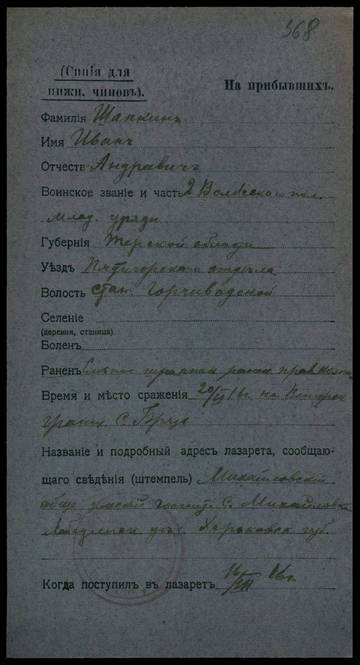 368
(Синія для
нижн. чиновъ).
На прибывшихъ.
Фамилія Шапкинъ
Имя Иванъ
Отчеств Андравичъ
Воинское званіе и часть 2 Волжскаго пол.
млад. уряди
Губернія Терской области
Уѣздъ Пятигорскаго отдѣла
Волость стан. Горчиводской
Селеніе
(деревня, станица)
Боленъ
Раненъ рана
Время и мѣсто сраженія на
с.
Названіе и подробный адресъ лазарета, сообщаю-
щаго свѣдѣнія (штемпель) Михайловскій
госпит. с. Михайловка
Лебедянск уѣз. Харьковск губ.
Когда поступил въ лазаретъ